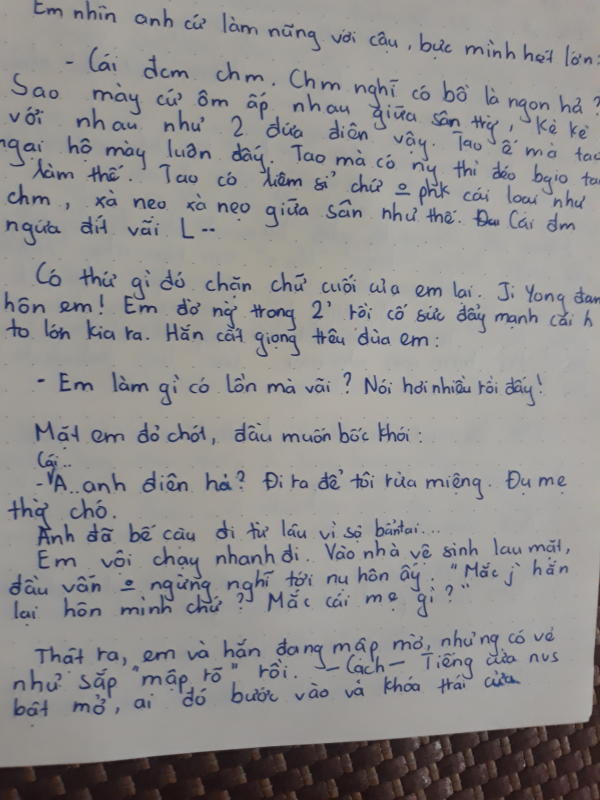 Em nhìn anh cứ làm nũng với cậu, bực mình hét lớn:
- Cái đcm chm. Chm nghĩ có bồ là ngon hả?
Sao mày cứ ôm ấp nhau giữa sân trg, kè kè
với nhau như 2 đứa điên vậy. Tao ế mà tao
ngại hộ mày luôn đấy. Tao mà có ny thì đéo bgio ta
làm thế. Tao có liêm sỉ chứ o phk cái loại như
chm, xà nẹo xà nẹo giữa sân như thế. Cái đm
ngứa đít vãi L--
Có thứ gì đó chặn chữ cuối của em lại. Ji Yong đan
hôn em! Em đờ ng` trong 2' rồi cố sức đẩy mạnh cái h
to lớn kia ra. Hắn cất giọng trêu đùa em:
- Em làm gì có lồn mà vãi? Nói hơi nhiều rồi đấy!
Mặt em đỏ chót, đầu muốn bốc khói:
Cái..
- A..anh điên hả? Đi ra để tôi rửa miệng. Đụ mẹ
thg` chó.
Anh đã bế cậu đi từ lâu vì sợ bẩn tai...
Em vội chạy nhanh đi. Vào nhà vệ sinh lau mặt,
đầu vẫn o ngừng nghĩ tới nụ hôn ấy. "Mắc j` hắn
lại hôn mình chứ? Mắc cái mẹ gì?"
Thật ra, em và hắn đang mập mờ, nhưng có vẻ
như sắp "mập rõ" rồi. -Cạch- Tiếng cửa nvs
bật mở, ai đó bước vào và khóa trái cửa